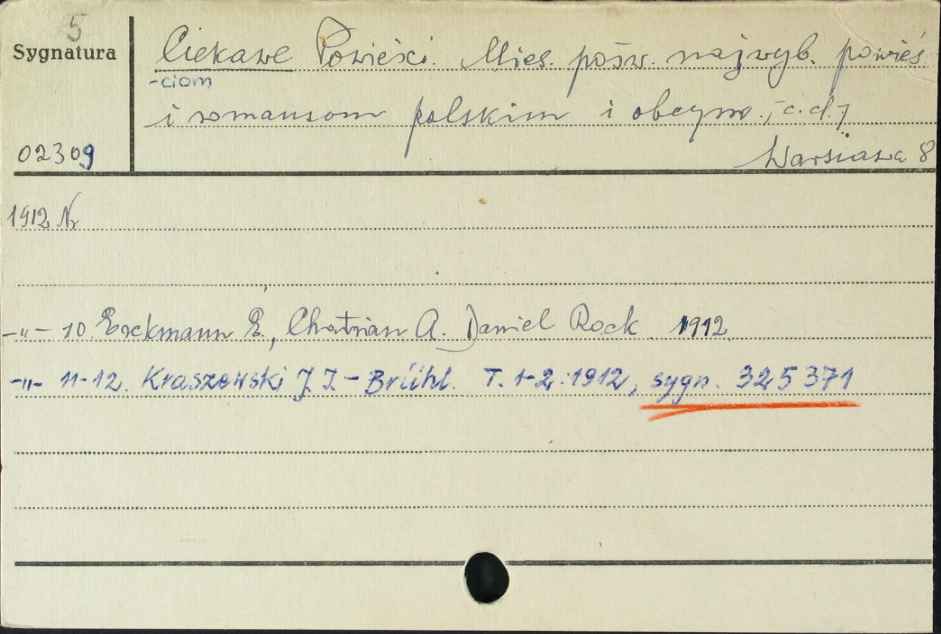 5
Sygnatura
Ciekawe Powieści. Mies. pośw. najwyb. powieś-
-ciom
i romansom polskim i obcym., c.d.,
02309
Warszawa 8
1912 Nr
-"- 10 Erckmann E., Chatrian A. Daniel Rock 1912.
-"- 11-12. Kraszewski J. I. - Brühl. T. 1-2. 1912, sygn. 325371